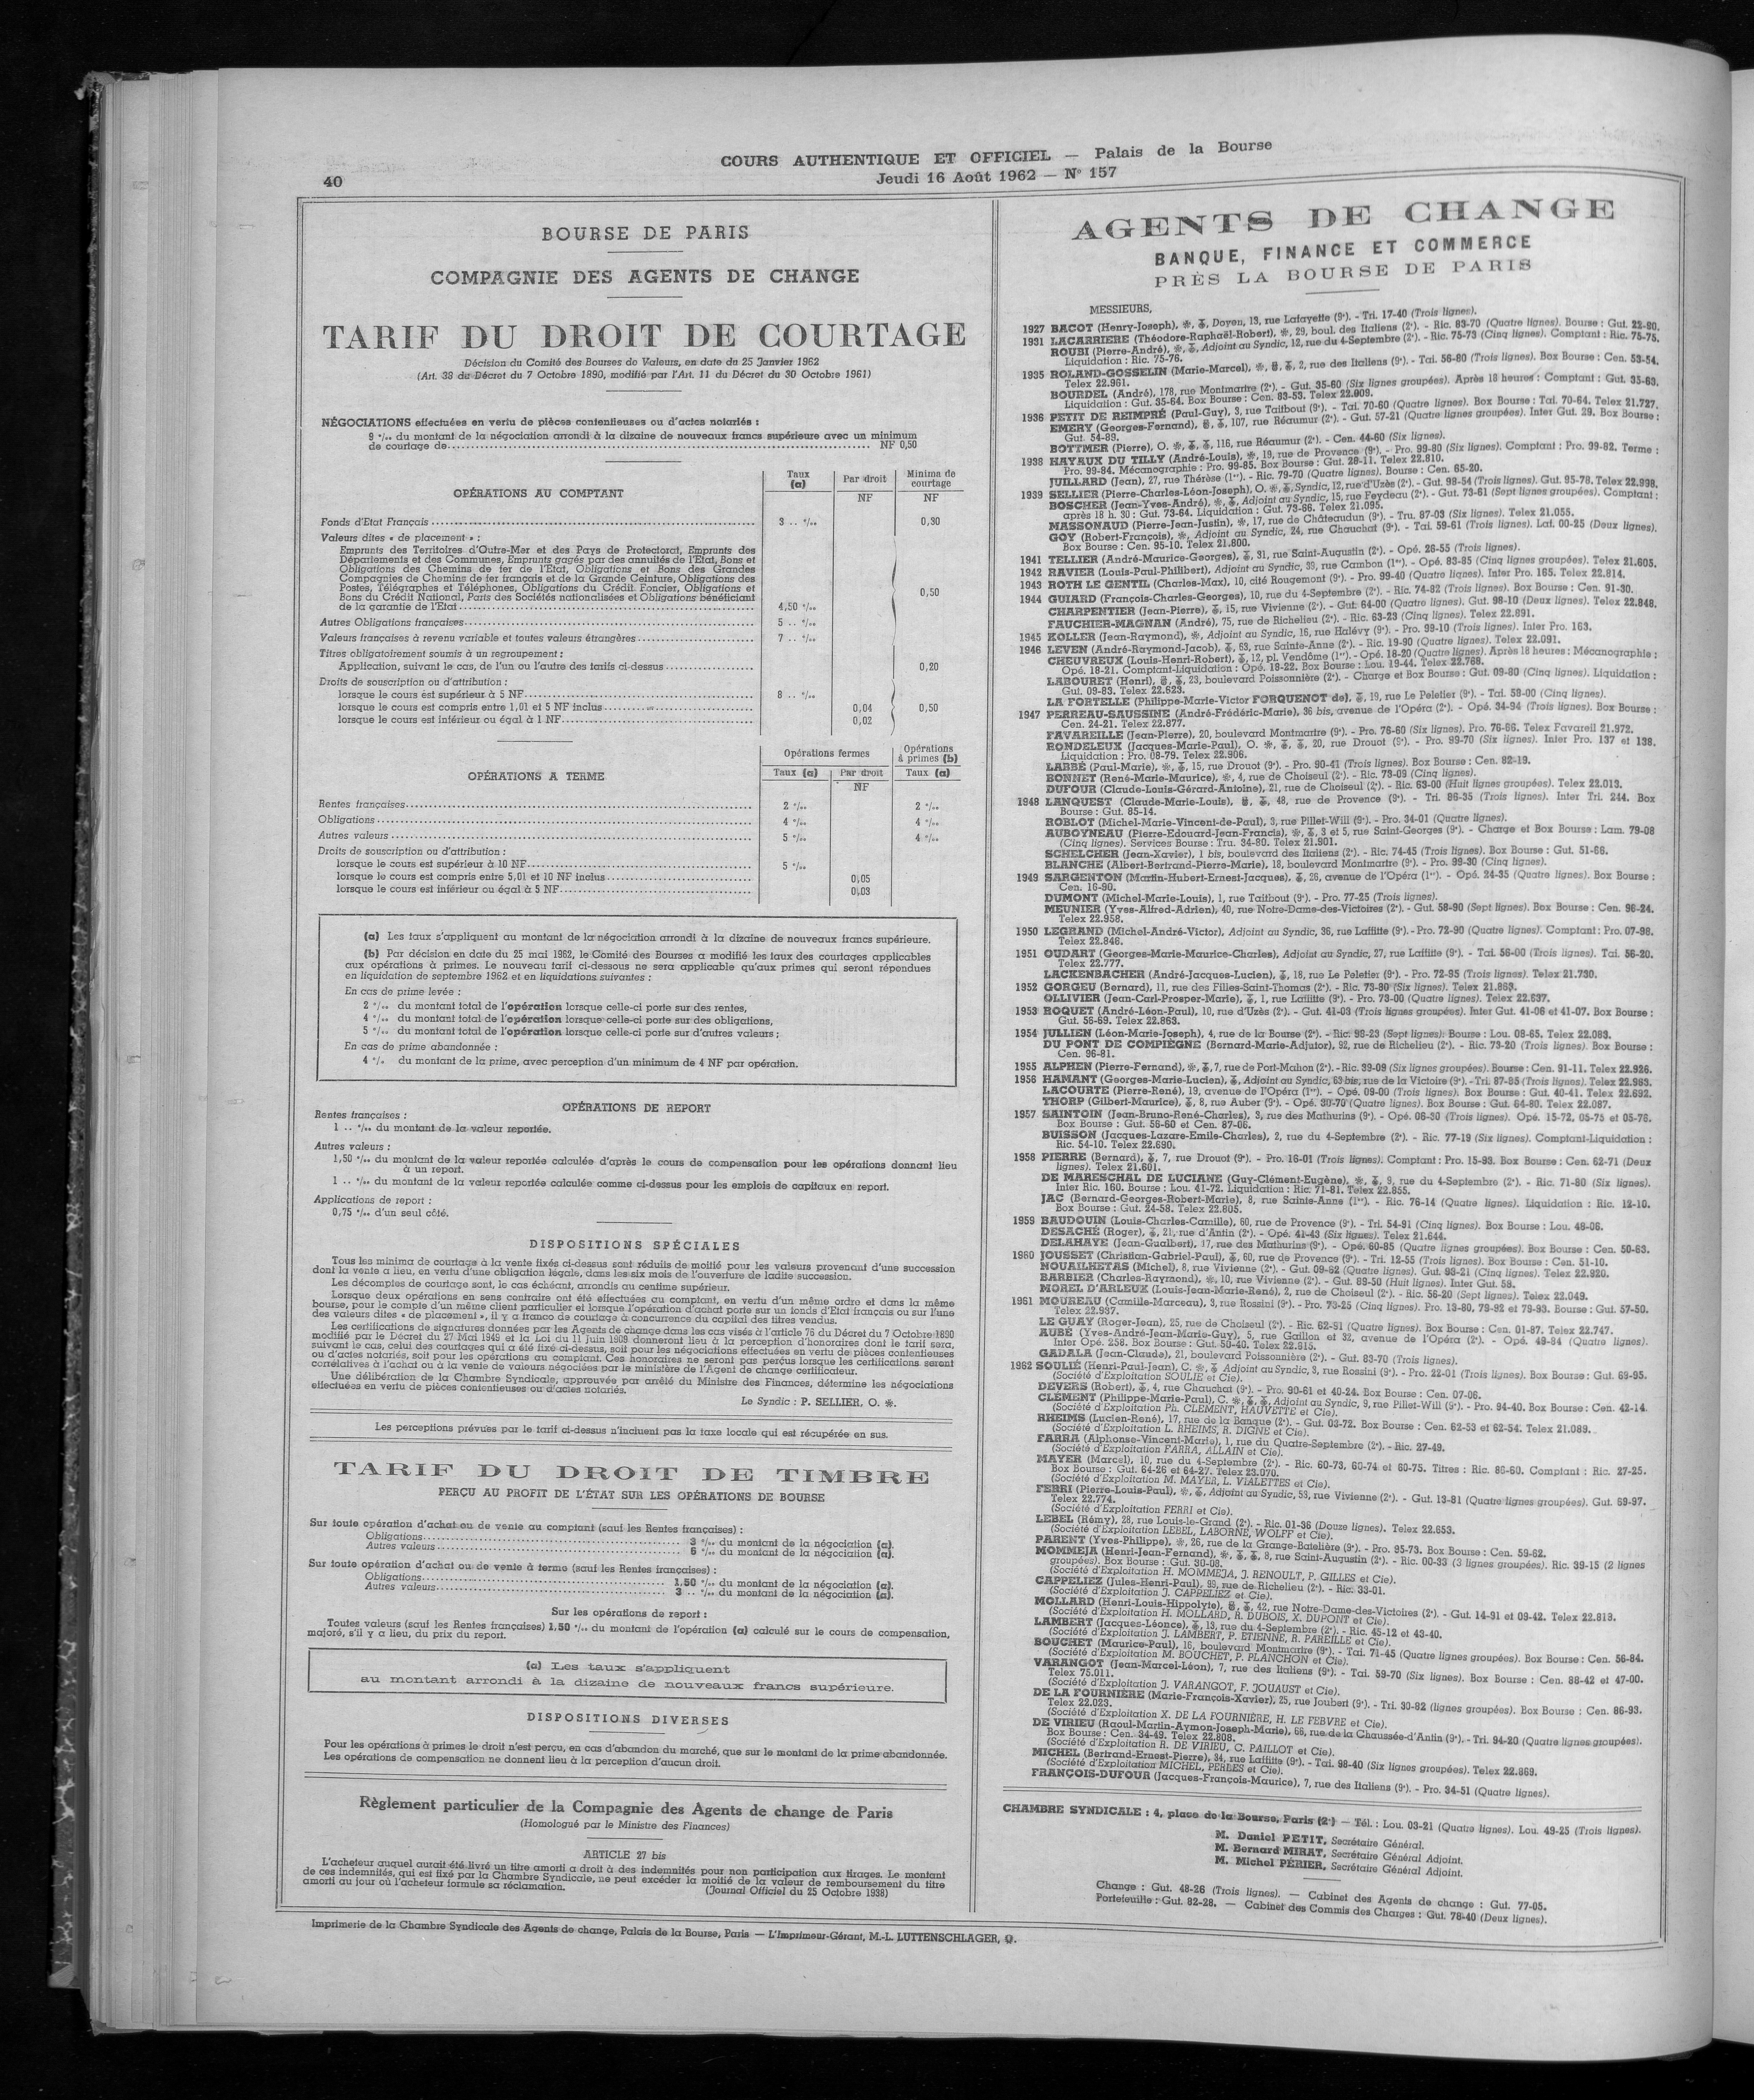 COURS AUTHENTIQUE ET OFFICIEL — Palais de la Bourse
40
Jeudi 16 Août 1962 — N° 157
BOURSE DE PARIS
COMPAGNIE DES AGENTS DE CHANGE
TARIF DU DROIT DE COURTAGE
Décision du Comité des Bourses de Valeurs, en date du 25 Janvier 1962
(Art. 38 du Décret du 7 Octobre 1890, modifié par l'Art. 11 du Décret du 30 Octobre 1961)
NÉGOCIATIONS effectuées en vertu de pièces contentieuses ou d'actes notariés :
9 ‰ du montant de la négociation arrondi à la dizaine de nouveaux francs supérieure avec un minimum
de courtage de NF 0,50
OPÉRATIONS AU COMPTANT
Taux (a) Par droit Minima de courtage
NF NF
Fonds d'Etat Français 3 .. ‰ 0,30
Valeurs dites « de placement » :
Emprunts des Territoires d'Outre-Mer et des Pays de Protectorat, Emprunts des
Départements et des Communes, Emprunts gagés par des annuités de l'Etat, Bons et
Obligations des Chemins de fer de l'Etat, Obligations et Bons des Grandes
Compagnies de Chemins de fer français et de la Grande Ceinture, Obligations des
Postes, Télégraphes et Téléphones, Obligations du Crédit Foncier, Obligations et
Bons du Crédit National, Parts des Sociétés nationalisées et Obligations bénéficiant
de la garantie de l'Etat 4,50 ‰ 0,50
Autres Obligations françaises 5 .. ‰
Valeurs françaises à revenu variable et toutes valeurs étrangères 7 .. ‰
Titres obligatoirement soumis à un regroupement :
Application, suivant le cas, de l'un ou l'autre des tarifs ci-dessus 0,20
Droits de souscription ou d'attribution :
lorsque le cours est supérieur à 5 NF 8 .. ‰
lorsque le cours est compris entre 1,01 et 5 NF inclus 0,04 0,50
lorsque le cours est inférieur ou égal à 1 NF 0,02
OPÉRATIONS A TERME
Opérations fermes Opérations à primes (b)
Taux (a) Par droit Taux (a)
NF
Rentes françaises 2 ‰ 2 ‰
Obligations 4 ‰ 4 ‰
Autres valeurs 5 ‰ 4 ‰
Droits de souscription ou d'attribution :
lorsque le cours est supérieur à 10 NF 5 ‰
lorsque le cours est compris entre 5,01 et 10 NF inclus 0,05
lorsque le cours est inférieur ou égal à 5 NF 0,03
(a) Les taux s'appliquent au montant de la négociation arrondi à la dizaine de nouveaux francs supérieure.
(b) Par décision en date du 25 mai 1962, le Comité des Bourses a modifié les taux des courtages applicables
aux opérations à primes. Le nouveau tarif ci-dessous ne sera applicable qu'aux primes qui seront répondues
en liquidation de septembre 1962 et en liquidations suivantes :
En cas de prime levée :
2 ‰ du montant total de l'opération lorsque celle-ci porte sur des rentes,
4 ‰ du montant total de l'opération lorsque celle-ci porte sur des obligations,
5 ‰ du montant total de l'opération lorsque celle-ci porte sur d'autres valeurs ;
En cas de prime abandonnée :
4 % du montant de la prime, avec perception d'un minimum de 4 NF par opération.
OPÉRATIONS DE REPORT
Rentes françaises :
1 .. ‰ du montant de la valeur reportée.
Autres valeurs :
1,50 ‰ du montant de la valeur reportée calculée d'après le cours de compensation pour les opérations donnant lieu
à un report.
1 .. ‰ du montant de la valeur reportée calculée comme ci-dessus pour les emplois de capitaux en report.
Applications de report :
0,75 ‰ d'un seul côté.
DISPOSITIONS SPÉCIALES
Tous les minima de courtage à la vente fixés ci-dessus sont réduits de moitié pour les valeurs provenant d'une succession
dont la vente a lieu, en vertu d'une obligation légale, dans les six mois de l'ouverture de ladite succession.
Les décomptes de courtage sont, le cas échéant, arrondis au centime supérieur.
Lorsque deux opérations en sens contraire ont été effectuées au comptant, en vertu d'un même ordre et dans la même
bourse, pour le compte d'un même client particulier et lorsque l'opération d'achat porte sur un fonds d'Etat français ou sur l'une
des valeurs dites « de placement », il y a franco de courtage à concurrence du capital des titres vendus.
Les certifications de signatures données par les Agents de change dans les cas visés à l'article 76 du Décret du 7 Octobre 1890
modifié par le Décret du 27 Mai 1949 et la Loi du 11 juin 1909 donneront lieu à la perception d'honoraires dont le tarif sera,
suivant le cas, celui des courtages qui a été fixé ci-dessus, soit pour les négociations effectuées en vertu de pièces contentieuses
ou d'actes notariés, soit pour les opérations au comptant. Ces honoraires ne seront pas perçus lorsque les certifications seront
corrélatives à l'achat ou à la vente de valeurs négociées par le ministère de l'Agent de change certificateur.
Une délibération de la Chambre Syndicale, approuvée par arrêté du Ministre des Finances, détermine les négociations
effectuées en vertu de pièces contentieuses ou d'actes notariés.
Le Syndic : P. SELLIER, O. ✻.
Les perceptions prévues par le tarif ci-dessus n'incluent pas la taxe locale qui est récupérée en sus.
TARIF DU DROIT DE TIMBRE
PERÇU AU PROFIT DE L'ÉTAT SUR LES OPÉRATIONS DE BOURSE
Sur toute opération d'achat ou de vente au comptant (sauf les Rentes françaises) :
Obligations 3 ‰ du montant de la négociation (a).
Autres valeurs 6 ‰ du montant de la négociation (a).
Sur toute opération d'achat ou de vente à terme (sauf les Rentes françaises) :
Obligations 1,50 ‰ du montant de la négociation (a).
Autres valeurs 3 .. ‰ du montant de la négociation (a).
Sur les opérations de report :
Toutes valeurs (sauf les Rentes françaises) 1,50 ‰ du montant de l'opération (a) calculé sur le cours de compensation,
majoré, s'il y a lieu, du prix du report.
(a) Les taux s'appliquent
au montant arrondi à la dizaine de nouveaux francs supérieure.
DISPOSITIONS DIVERSES
Pour les opérations à primes le droit n'est perçu, en cas d'abandon du marché, que sur le montant de la prime abandonnée.
Les opérations de compensation ne donnent lieu à la perception d'aucun droit.
Règlement particulier de la Compagnie des Agents de change de Paris
(Homologué par le Ministre des Finances)
ARTICLE 27 bis
L'acheteur auquel aurait été livré un titre amorti a droit à des indemnités pour non participation aux tirages. Le montant
de ces indemnités, qui est fixé par la Chambre Syndicale, ne peut excéder la moitié de la valeur de remboursement du titre
amorti au jour où l'acheteur formule sa réclamation. (Journal Officiel du 25 Octobre 1938)
AGENTS DE CHANGE
BANQUE, FINANCE ET COMMERCE
PRÈS LA BOURSE DE PARIS
MESSIEURS,
1927 BACOT (Henry-Joseph), Doyen, 13, rue Lafayette (9e). - Tri. 17-40 (Trois lignes).
1931 LACARRIERE (Théodore-Raphaël-Robert), 29, boul. des Italiens (2e). - Ric. 83-70 (Quatre lignes). Bourse : Gut. 22-80.
ROUBI (Pierre-André), Adjoint au Syndic, 12, rue du 4-Septembre (2e). - Ric. 75-73 (Cinq lignes). Comptant : Ric. 75-75.
Liquidation : Ric. 75-76.
1935 ROLAND-GOSSELIN (Marie-Marcel), 2, rue des Italiens (9e). - Tai. 56-80 (Trois lignes). Box Bourse : Cen. 53-54.
Telex 22.961.
BOURDEL (André), 178, rue Montmartre (2e). - Gut. 35-60 (Six lignes groupées). Après 18 heures : Comptant : Gut. 35-63.
Liquidation : Gut. 35-64. Box Bourse : Cen. 83-53. Telex 22.009.
1936 PETIT DE REIMPRÉ (Paul-Guy), 3, rue Taitbout (9e). - Tai. 70-60 (Quatre lignes). Box Bourse : Tai. 70-64. Telex 21.727.
EMERY (Georges-Fernand), 107, rue Réaumur (2e). - Gut. 57-21 (Quatre lignes groupées). Inter Gut. 29. Box Bourse :
Gut. 54-89.
BOTTMER (Pierre), O. 116, rue Réaumur (2e). - Cen. 44-60 (Six lignes).
1938 HAYAUX DU TILLY (André-Louis), 19, rue de Provence (9e). - Pro. 99-80 (Six lignes). Comptant : Pro. 99-82. Terme :
Pro. 99-84. Mécanographie : Pro. 99-85. Box Bourse : Gut. 28-11. Telex 22.810.
JUILLARD (Jean), 27, rue Thérèse (1er). - Ric. 79-70 (Quatre lignes). Bourse : Cen. 65-20.
1939 SELLIER (Pierre-Charles-Léon-Joseph), O. Syndic, 12, rue d'Uzès (2e). - Gut. 98-54 (Trois lignes). Gut. 95-78. Telex 22.998.
BOSCHER (Jean-Yves-André), Adjoint au Syndic, 15, rue Feydeau (2e). - Gut. 73-61 (Sept lignes groupées). Comptant :
après 18 h. 30 : Gut. 73-64. Liquidation : Gut. 73-66. Telex 21.095.
MASSONAUD (Pierre-Jean-Justin), 17, rue de Châteaudun (9e). - Tru. 87-03 (Six lignes). Telex 21.055.
GOY (Robert-François), Adjoint au Syndic, 24, rue Chauchat (9e). - Tai. 59-61 (Trois lignes). Laf. 00-25 (Deux lignes).
Box Bourse : Cen. 95-10. Telex 21.800.
1941 TELLIER (André-Maurice-Georges), 31, rue Saint-Augustin (2e). - Opé. 26-55 (Trois lignes).
1942 RAVIER (Louis-Paul-Philibert), Adjoint au Syndic, 39, rue Cambon (1er). - Opé. 83-85 (Cinq lignes groupées). Telex 21.605.
1943 ROTH LE GENTIL (Charles-Max), 10, cité Rougemont (9e). - Pro. 99-40 (Quatre lignes). Inter Pro. 165. Telex 22.814.
1944 GUIARD (François-Charles-Georges), 10, rue du 4-Septembre (2e). - Ric. 74-82 (Trois lignes). Box Bourse : Cen. 91-30.
CHARPENTIER (Jean-Pierre), 15, rue Vivienne (2e). - Gut. 64-00 (Quatre lignes). Gut. 98-10 (Deux lignes). Telex 22.848.
FAUCHIER-MAGNAN (André), 75, rue de Richelieu (2e). - Ric. 63-23 (Cinq lignes). Telex 22.891.
1945 KOLLER (Jean-Raymond), Adjoint au Syndic, 16, rue Halévy (9e). - Pro. 99-10 (Trois lignes). Inter Pro. 163.
1946 LEVEN (André-Raymond-Jacob), 63, rue Sainte-Anne (2e). - Ric. 19-90 (Quatre lignes). Telex 22.091.
CHEUVREUX (Louis-Henri-Robert), 12, pl. Vendôme (1er). - Opé. 18-20 (Quatre lignes). Après 18 heures : Mécanographie :
Opé. 18-21. Comptant-Liquidation : Opé. 18-22. Box Bourse : Lou. 19-44. Telex 22.768.
LABOURET (Henri), 23, boulevard Poissonnière (2e). - Change et Box Bourse : Gut. 09-80 (Cinq lignes). Liquidation :
Gut. 09-83. Telex 22.623.
LA FORTELLE (Philippe-Marie-Victor FORQUENOT de), 19, rue Le Peletier (9e). - Tai. 59-00 (Cinq lignes).
1947 PERREAU-SAUSSINE (André-Frédéric-Marie), 36 bis, avenue de l'Opéra (2e). - Opé. 34-94 (Trois lignes). Box Bourse :
Cen. 24-21. Telex 22.877.
FAVAREILLE (Jean-Pierre), 20, boulevard Montmartre (9e). - Pro. 76-60 (Six lignes). Pro. 76-66. Telex Favareil 21.972.
RONDELEUX (Jacques-Marie-Paul), O. 20, rue Drouot (9e). - Pro. 99-70 (Six lignes). Inter Pro. 137 et 138.
Liquidation : Pro. 08-79. Telex 22.906.
LABBÉ (Paul-Marie), 15, rue Drouot (9e). - Pro. 90-41 (Trois lignes). Box Bourse : Cen. 82-19.
BONNET (René-Marie-Maurice), 4, rue de Choiseul (2e). - Ric. 78-09 (Cinq lignes).
DUFOUR (Claude-Louis-Gérard-Antoine), 21, rue de Choiseul (2e). - Ric. 63-00 (Huit lignes groupées). Telex 22.013.
1948 LANQUEST (Claude-Marie-Louis), 48, rue de Provence (9e). - Tri. 86-35 (Trois lignes). Inter Tri. 244. Box
Bourse : Gut. 85-14.
ROBLOT (Michel-Marie-Vincent-de-Paul), 3, rue Pillet-Will (9e). - Pro. 34-01 (Quatre lignes).
AUBOYNEAU (Pierre-Edouard-Jean-Francis), 3 et 5, rue Saint-Georges (9e). - Change et Box Bourse : Lam. 79-08
(Cinq lignes). Services Bourse : Tru. 34-80. Telex 21.901.
SCHELCHER (Jean-Xavier), 1 bis, boulevard des Italiens (2e). - Ric. 74-45 (Trois lignes). Box Bourse : Gut. 51-66.
BLANCHE (Albert-Bertrand-Pierre-Marie), 18, boulevard Montmartre (9e). - Pro. 99-30 (Cinq lignes).
1949 SARGENTON (Martin-Hubert-Ernest-Jacques), 26, avenue de l'Opéra (1er). - Opé. 24-35 (Quatre lignes). Box Bourse :
Cen. 16-90.
DUMONT (Michel-Marie-Louis), 1, rue Taitbout (9e). - Pro. 77-25 (Trois lignes).
MEUNIER (Yves-Alfred-Adrien), 40, rue Notre-Dame-des-Victoires (2e). - Gut. 58-90 (Sept lignes). Box Bourse : Cen. 96-24.
Telex 22.958.
1950 LEGRAND (Michel-André-Victor), Adjoint au Syndic, 36, rue Laffitte (9e). - Pro. 72-90 (Quatre lignes). Comptant : Pro. 07-98.
Telex 22.846.
1951 OUDART (Georges-Marie-Maurice-Charles), Adjoint au Syndic, 27, rue Laffitte (9e). - Tai. 56-00 (Trois lignes). Tai. 56-20.
Telex 22.777.
LACKENBACHER (André-Jacques-Lucien), 18, rue Le Peletier (9e). - Pro. 72-95 (Trois lignes). Telex 21.730.
1952 GORGEU (Bernard), 11, rue des Filles-Saint-Thomas (2e). - Ric. 73-80 (Six lignes). Telex 21.863.
OLLIVIER (Jean-Carl-Prosper-Marie), 1, rue Laffitte (9e). - Pro. 73-00 (Quatre lignes). Telex 22.637.
1953 ROQUET (André-Léon-Paul), 10, rue d'Uzès (2e). - Gut. 41-03 (Trois lignes groupées). Inter Gut. 41-06 et 41-07. Box Bourse :
Gut. 56-69. Telex 22.863.
1954 JULLIEN (Léon-Marie-Joseph), 4, rue de la Bourse (2e). - Ric. 98-23 (Sept lignes). Bourse : Lou. 08-65. Telex 22.083.
DU PONT DE COMPIÈGNE (Bernard-Marie-Adjutor), 92, rue de Richelieu (2e). - Ric. 73-20 (Trois lignes). Box Bourse :
Cen. 96-81.
1955 ALPHEN (Pierre-Fernand), 7, rue de Port-Mahon (2e). - Ric. 39-09 (Six lignes groupées). Bourse : Cen. 91-11. Telex 22.926.
1956 HAMANT (Georges-Marie-Lucien), Adjoint au Syndic, 63 bis, rue de la Victoire (9e). - Tri. 87-85 (Trois lignes). Telex 22.983.
LACOURTE (Pierre-René), 19, avenue de l'Opéra (1er). - Opé. 09-00 (Trois lignes). Box Bourse : Gut. 40-41. Telex 22.692.
THORP (Gilbert-Maurice), 8, rue Auber (9e). - Opé. 30-70 (Quatre lignes). Box Bourse : Gut. 64-80. Telex 22.087.
1957 SAINTOIN (Jean-Bruno-René-Charles), 3, rue des Mathurins (9e). - Opé. 06-30 (Trois lignes). Opé. 15-72, 05-75 et 05-76.
Box Bourse : Gut. 56-60 et Cen. 87-06.
BUISSON (Jacques-Lazare-Emile-Charles), 2, rue du 4-Septembre (2e). - Ric. 77-19 (Six lignes). Comptant-Liquidation :
Ric. 54-10. Telex 22.690.
1958 PIERRE (Bernard), 7, rue Drouot (9e). - Pro. 16-01 (Trois lignes). Comptant : Pro. 15-93. Box Bourse : Cen. 62-71 (Deux
lignes). Telex 21.601.
DE MARESCHAL DE LUCIANE (Guy-Clément-Eugène), 9, rue du 4-Septembre (2e). - Ric. 71-80 (Six lignes).
Inter Ric. 160. Bourse : Lou. 41-72. Liquidation : Ric. 71-81. Telex 22.855.
JAC (Bernard-Georges-Robert-Marie), 8, rue Sainte-Anne (1er). - Ric. 76-14 (Quatre lignes). Liquidation : Ric. 12-10.
Box Bourse : Gut. 24-58. Telex 22.805.
1959 BAUDOUIN (Louis-Charles-Camille), 60, rue de Provence (9e). - Tri. 54-91 (Cinq lignes). Box Bourse : Lou. 48-06.
DESACHÉ (Roger), 21, rue d'Antin (2e). - Opé. 41-43 (Six lignes). Telex 21.644.
DELAHAYE (Jean-Gualbert), 17, rue des Mathurins (9e). - Opé. 60-85 (Quatre lignes groupées). Box Bourse : Cen. 50-63.
1960 JOUSSET (Christian-Gabriel-Paul), 60, rue de Provence (9e). - Tri. 12-55 (Trois lignes). Box Bourse : Cen. 51-10.
NOUAILHETAS (Michel), 8, rue Vivienne (2e). - Gut. 09-62 (Quatre lignes). Gut. 98-21 (Cinq lignes). Telex 22.920.
BARBIER (Charles-Raymond), 10, rue Vivienne (2e). - Gut. 89-50 (Huit lignes). Inter Gut. 58.
MOREL D'ARLEUX (Louis-Jean-Marie-René), 2, rue de Choiseul (2e). - Ric. 56-20 (Sept lignes). Telex 22.049.
1961 MOUREAU (Camille-Marceau), 3, rue Rossini (9e). - Pro. 73-25 (Cinq lignes). Pro. 13-80, 79-92 et 79-93. Bourse : Gut. 57-50.
Telex 22.937.
LE GUAY (Roger-Jean), 25, rue de Choiseul (2e). - Ric. 62-51 (Quatre lignes). Box Bourse : Cen. 01-87. Telex 22.747.
AUBÉ (Yves-André-Jean-Marie-Guy), 5, rue Gaillon et 32, avenue de l'Opéra (2e). - Opé. 49-84 (Quatre lignes).
Inter Opé. 258. Box Bourse : Gut. 50-40. Telex 22.915.
GADALA (Jean-Claude), 21, boulevard Poissonnière (2e). - Gut. 83-70 (Trois lignes).
1962 SOULIÉ (Henri-Paul-Jean), C. Adjoint au Syndic, 3, rue Rossini (9e). - Pro. 22-01 (Trois lignes). Box Bourse : Gut. 69-95.
(Société d'Exploitation SOULIE et Cie).
DEVERS (Robert), 4, rue Chauchat (9e). - Pro. 90-61 et 40-24. Box Bourse : Cen. 07-06.
CLÉMENT (Philippe-Marie-Paul), C. Adjoint au Syndic, 9, rue Pillet-Will (9e). - Pro. 94-40. Box Bourse : Cen. 42-14.
(Société d'Exploitation Ph. CLEMENT, HAUVETTE et Cie).
RHEIMS (Lucien-René), 17, rue de la Banque (2e). - Gut. 03-72. Box Bourse : Cen. 62-53 et 62-54. Telex 21.089.
(Société d'Exploitation L. RHEIMS, R. DIGNE et Cie).
FARRA (Alphonse-Vincent-Marie), 1, rue du Quatre-Septembre (2e). - Ric. 27-49.
(Société d'Exploitation FARRA, ALLAIN et Cie).
MAYER (Marcel), 10, rue du 4-Septembre (2e). - Ric. 60-73, 60-74 et 60-75. Titres : Ric. 86-60. Comptant : Ric. 27-25.
Box Bourse : Gut. 64-26 et 64-27. Telex 23.070.
(Société d'Exploitation M. MAYER, L. VIALETTES et Cie).
FERRI (Pierre-Louis-Paul), Adjoint au Syndic, 53, rue Vivienne (2e). - Gut. 13-81 (Quatre lignes groupées). Gut. 69-97.
Telex 22.774.
(Société d'Exploitation FERRI et Cie).
LEBEL (Rémy), 28, rue Louis-le-Grand (2e). - Ric. 01-36 (Douze lignes). Telex 22.653.
(Société d'Exploitation LEBEL, LABORNE, WOLFF et Cie).
PARENT (Yves-Philippe), 26, rue de la Grange-Batelière (9e). - Pro. 95-73. Box Bourse : Cen. 59-62.
MOMMEJA (Henri-Jean-Fernand), 8, rue Saint-Augustin (2e). - Ric. 00-33 (3 lignes groupées). Ric. 39-15 (2 lignes
groupées). Box Bourse : Gut. 30-08.
(Société d'Exploitation H. MOMMEJA, J. RENOULT, P. GILLES et Cie).
CAPPELIEZ (Jules-Henri-Paul), 99, rue de Richelieu (2e). - Ric. 33-01.
(Société d'Exploitation J. CAPPELIEZ et Cie).
MOLLARD (Henri-Louis-Hippolyte), 42, rue Notre-Dame-des-Victoires (2e). - Gut. 14-91 et 09-42. Telex 22.818.
(Société d'Exploitation H. MOLLARD, R. DUBOIS, X. DUPONT et Cie).
LAMBERT (Jacques-Léonce), 13, rue du 4-Septembre (2e). - Ric. 45-12 et 43-40.
(Société d'Exploitation J. LAMBERT, P. ETIENNE, R. PAREILLE et Cie).
BOUCHET (Maurice-Paul), 16, boulevard Montmartre (9e). - Tai. 71-45 (Quatre lignes groupées). Box Bourse : Cen. 56-84.
(Société d'Exploitation M. BOUCHET, P. PLANCHON et Cie).
VARANGOT (Jean-Marcel-Léon), 7, rue des Italiens (9e). - Tai. 59-70 (Six lignes). Box Bourse : Cen. 88-42 et 47-00.
Telex 75.011.
(Société d'Exploitation J. VARANGOT, F. JOUAUST et Cie).
DE LA FOURNIÈRE (Marie-François-Xavier), 25, rue Joubert (9e). - Tri. 30-82 (lignes groupées). Box Bourse : Cen. 86-93.
Telex 22.023.
(Société d'Exploitation X. DE LA FOURNIÈRE, H. LE FEBVRE et Cie).
DE VIRIEU (Raoul-Martin-Aymon-Joseph-Marie), 66, rue de la Chaussée-d'Antin (9e). - Tri. 94-20 (Quatre lignes groupées).
Box Bourse : Cen. 34-49. Telex 22.808.
(Société d'Exploitation R. DE VIRIEU, C. PAILLOT et Cie).
MICHEL (Bertrand-Ernest-Pierre), 34, rue Laffitte (9e). - Tai. 98-40 (Six lignes groupées). Telex 22.869.
(Société d'Exploitation MICHEL, PERLES et Cie).
FRANÇOIS-DUFOUR (Jacques-François-Maurice), 7, rue des Italiens (9e). - Pro. 34-51 (Quatre lignes).
CHAMBRE SYNDICALE : 4, place de la Bourse, Paris (2e) — Tél. : Lou. 03-21 (Quatre lignes). Lou. 49-25 (Trois lignes).
M. Daniel PETIT, Secrétaire Général.
M. Bernard MIRAT, Secrétaire Général Adjoint.
M. Michel PÉRIER, Secrétaire Général Adjoint.
Change : Gut. 48-26 (Trois lignes). — Cabinet des Agents de change : Gut. 77-05.
Portefeuille : Gut. 82-28. — Cabinet des Commis des Charges : Gut. 78-40 (Deux lignes).
Imprimerie de la Chambre Syndicale des Agents de change, Palais de la Bourse, Paris — L'Imprimeur-Gérant, M.-L. LUTTENSCHLAGER, Q.